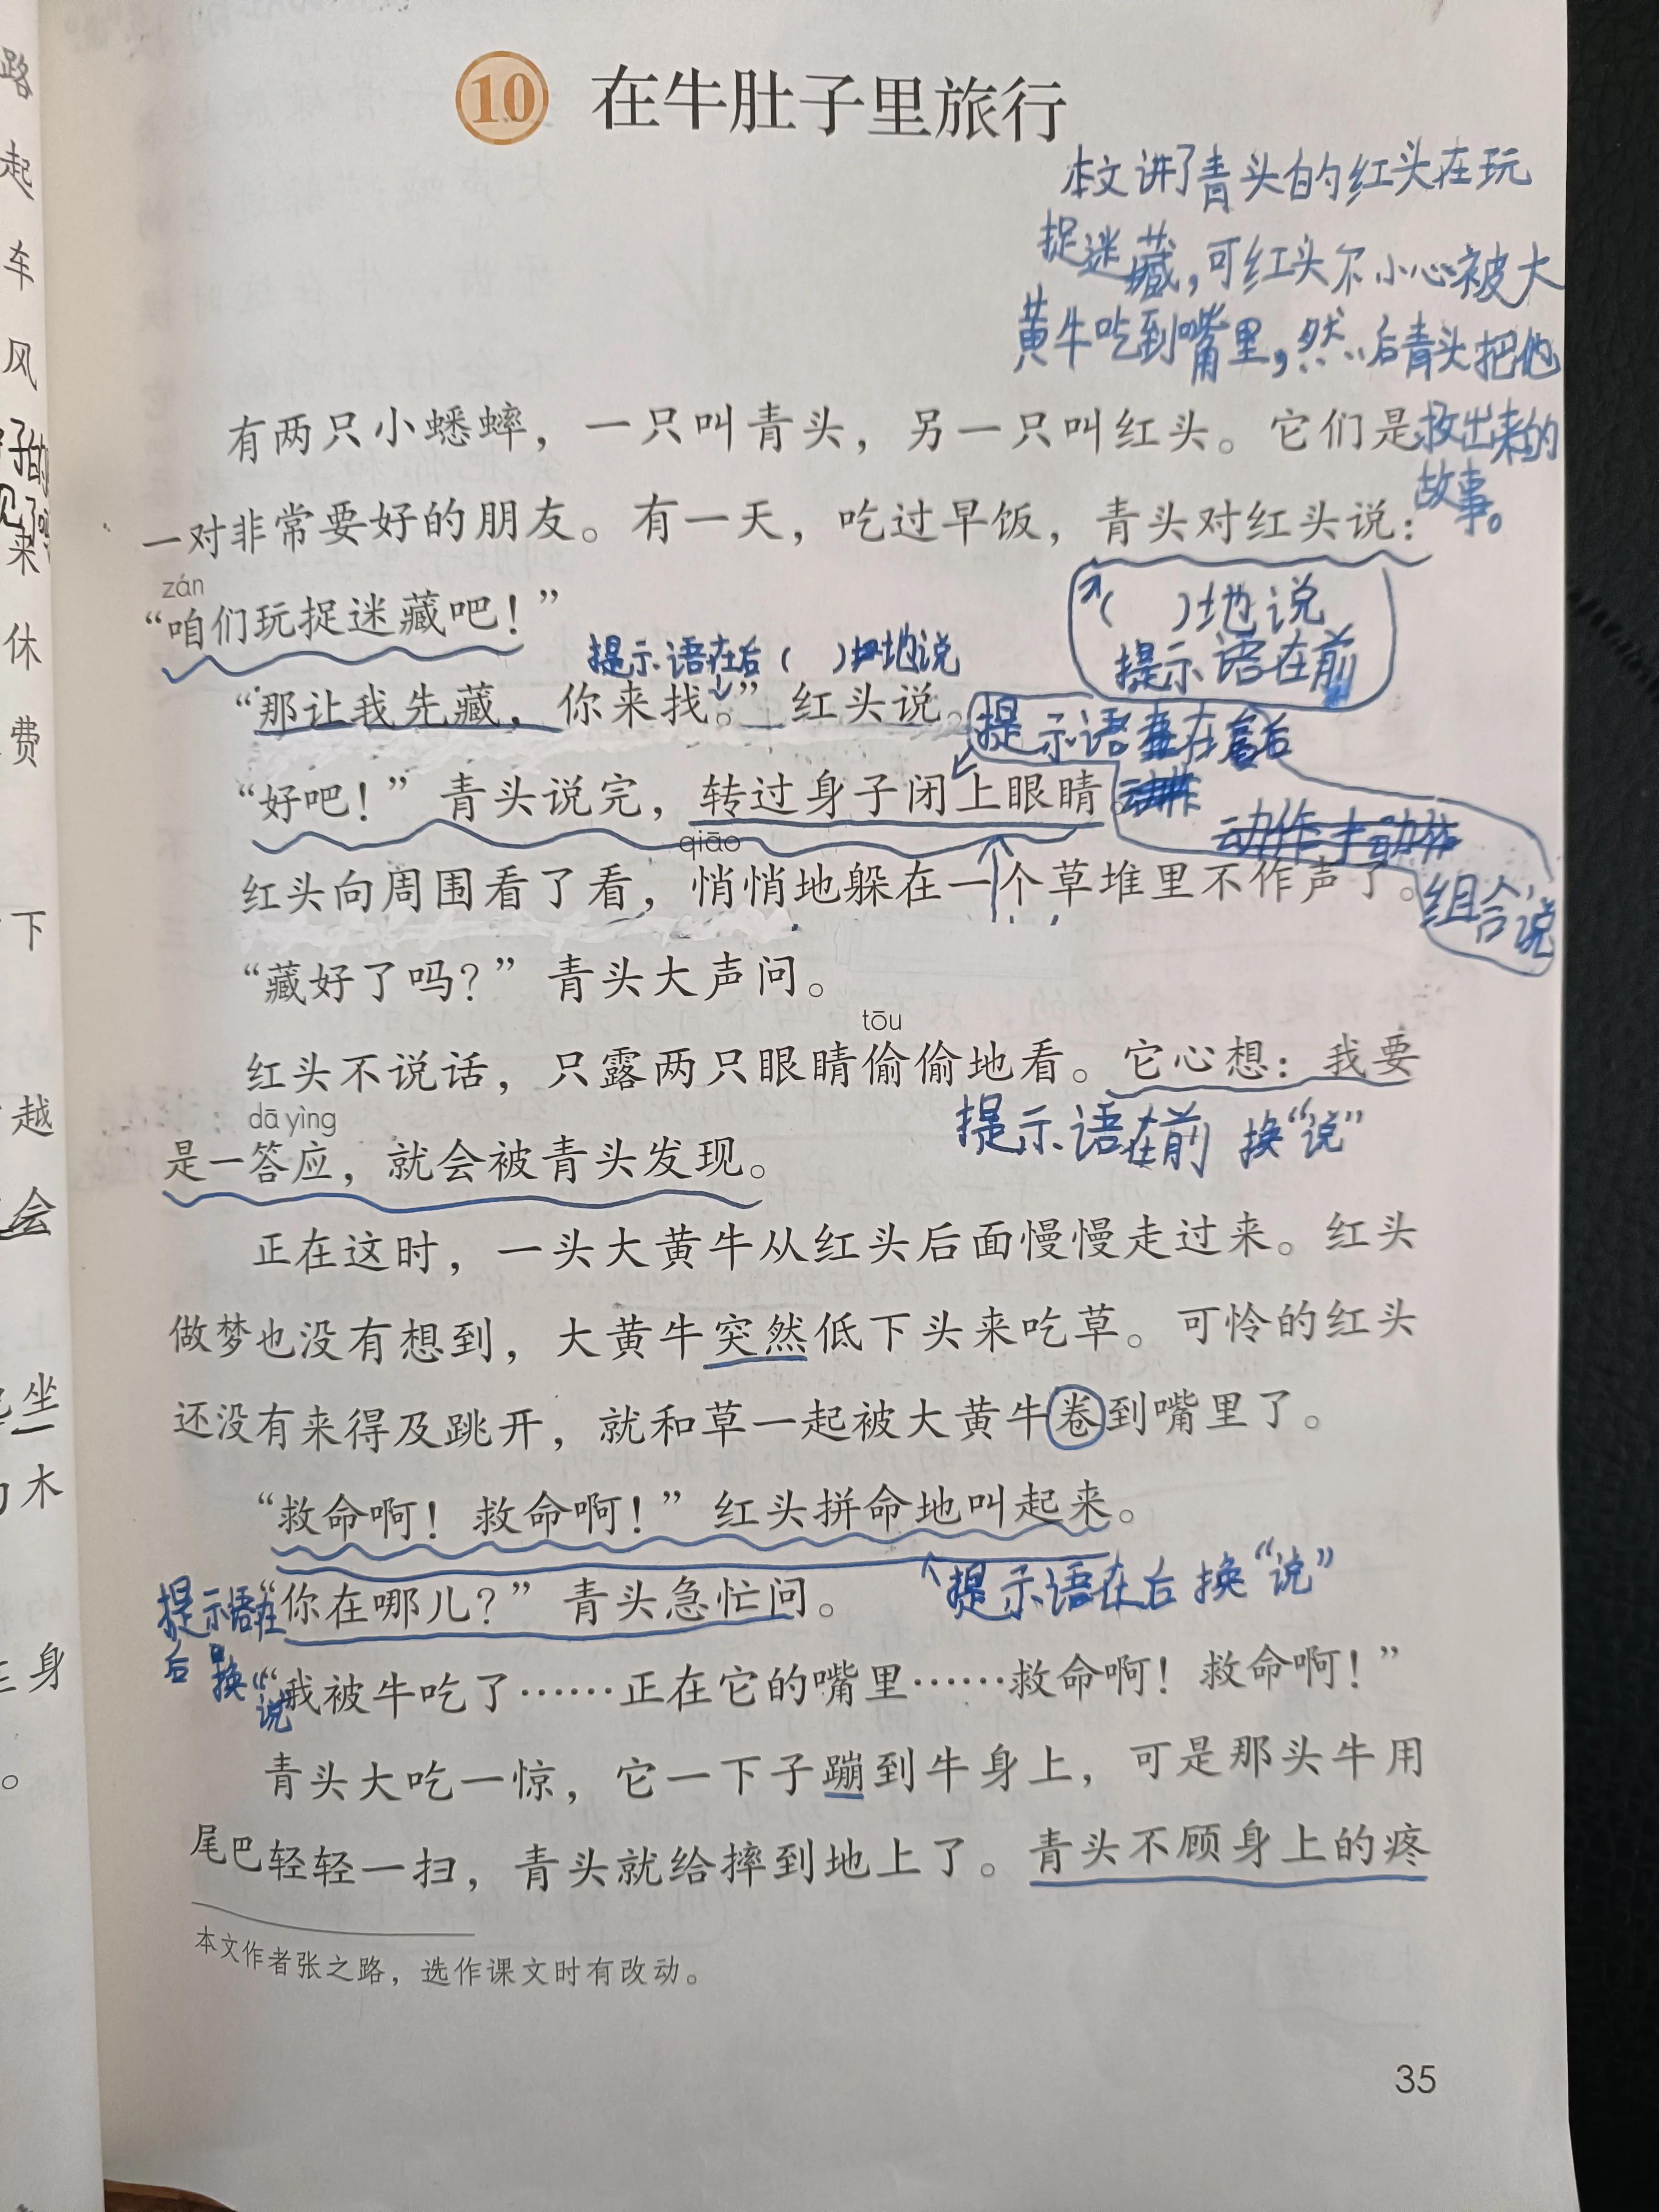 10 在牛肚子里旅行
本文讲了青头的红头在玩
捉迷藏，可红头不小心被大
黄牛吃到嘴里，然后青头把他
救出来的
故事。
有两只小蟋蟀，一只叫青头，另一只叫红头。它们是
一对非常要好的朋友。有一天，吃过早饭，青头对红头说：
zán
“咱们玩捉迷藏吧！”
（ ）地说
提示语在前
提示语在后（ ）地说
“那让我先藏，你来找。”红头说。
提示语在后
“好吧！”青头说完，转过身子闭上眼睛。
动作
组合说
qiāo
红头向周围看了看，悄悄地躲在一个草堆里不作声了。
“藏好了吗？”青头大声问。
tōu
红头不说话，只露两只眼睛偷偷地看。它心想：我要
dā yìng
是一答应，就会被青头发现。
提示语在前 换“说”
正在这时，一头大黄牛从红头后面慢慢走过来。红头
做梦也没有想到，大黄牛突然低下头来吃草。可怜的红头
还没有来得及跳开，就和草一起被大黄牛卷到嘴里了。
“救命啊！救命啊！”红头拼命地叫起来。
提示语在后 换“说”
“你在哪儿？”青头急忙问。
提示语在
后 换“说”
“我被牛吃了……正在它的嘴里……救命啊！救命啊！”
青头大吃一惊，它一下子蹦到牛身上，可是那头牛用
尾巴轻轻一扫，青头就给摔到地上了。青头不顾身上的疼
本文作者张之路，选作课文时有改动。
35
路
起
车
风
子的
来
休
费
下
越
会
坐
木
身